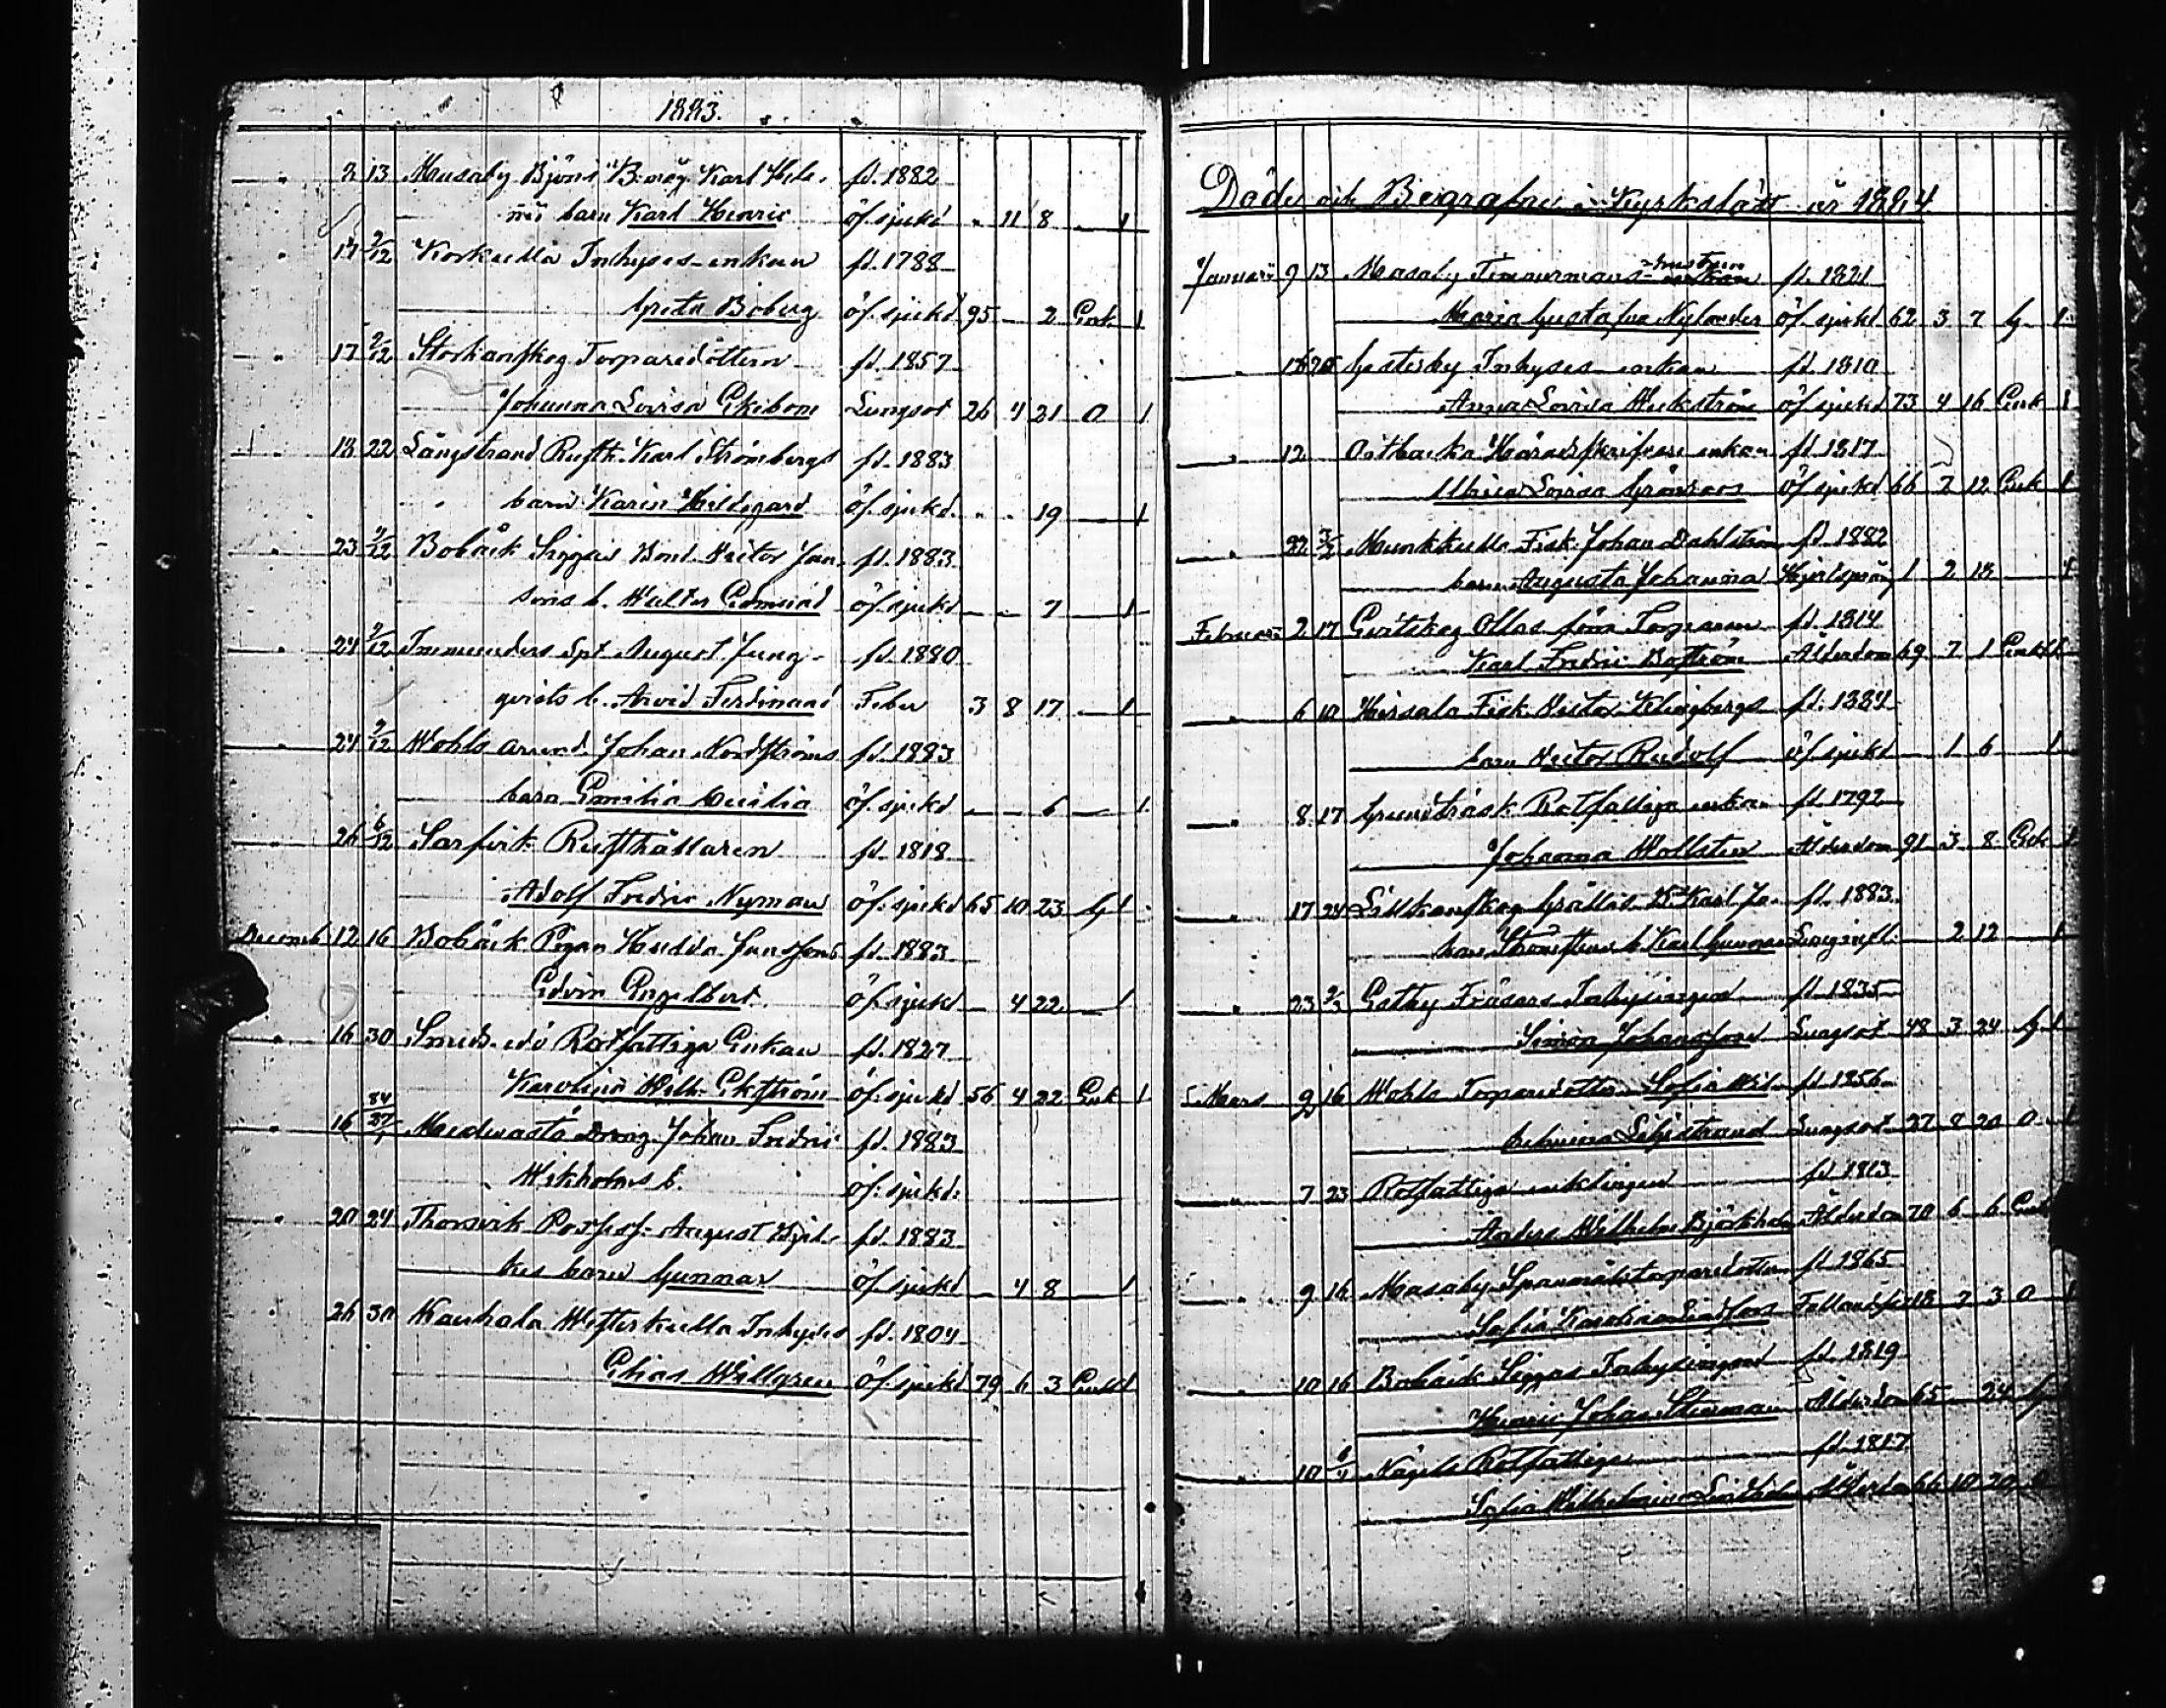 1883.
" 2 13 Masaby Björns B. måg Karl Hele- fd. 1882
nii barn Karl Henric öf. sjukd " 11 8 — 1
" 17 2/12 Korkulla Inhyses-enkan fd. 1788
Greta Boberg öf. sjukd 95 — 2 Enk. 1
" 17 2/12 Storkanskog Torparedottern fd. 1857
Johanna Lovisa Ekebom Lungsot 26 4 21 O 1
" 18 22 Långstrand Rusth. Karl Strömbergs fd. 1883
barn Karin Hildegard öf. sjukd. " " 19 — 1
" 23 9/12 Bobäck Siggas Bond. Victor Jan- fd. 1883
sons b. Walter Edmund öf. sjukd — — 7 — 1
" 24 2/12 Spt. August Ljung- fd. 1880
qvists b. Arvid Ferdinand Feber 3 8 17 — 1
" 24 2/12 Wohls arrend. Johan Nordströms fd. 1883
barn Emilia Cecilia öf. sjukd — — 6 — 1
" 26 6/12 Sarfvik Rusthållaren fd. 1818
Adolf Fredric Nyman öf. sjukd 65 10 23 G 1
Decemb. 12 16 Bobäck Pigan Hedda Janssons fd. 1883
Edvin Engelbert öf. sjukd — 4 22 — 1
" 16 30 Smeds Rotfattiga Enkan fd. 1827
Karolina Wilh. Ekström öf. sjukd 56 4 22 Enk 1
" 16 27/1 84 Medvasta Dräng. Johan Fredric fd. 1883
Wikholms b. öf. sjukd.
" 20 24 Thorsvik Possess. August Kyrk- fd. 1883
kes barn Gunnar öf. sjukd — 4 8 — 1
26 30 Kauhala Westerkulla Inhyses fd. 1804
Elias Willgren öf. sjukd 79 6 3 Enkl 1
Döde och Begrafne i Kyrkslätt år 1884
Januari 9 13 Masaby Timmermans-hustrun enkan fd. 1821
Maria Gustafva Nylander öf. sjukd 62 3 7 G 1
" 16 20 Gesterby Inhyses-enkan fd. 1810
Anna Lovisa Wickström öf. sjukd 73 4 16 Enk 1
" 12 Häradsskrifvare enkan fd. 1817
Ulrica Lovisa Grönroos öf. sjukd 66 7 12 Enk 1
" 22 3/2 Munkkulla Fisk. Johan Dahlström fd. 1882
barn Augusta Johanna 1 2 18 — 1
Februari 2 17 Evitskog Ollas förra Torparen fd. 1814
Karl Fredric Boström Ålderdom 69 7 1 Enkl 1
" 6 10 Hirsala Fisk. Victor Klingbergs fd. 1884
barn Victor Rudolf öf. sjukd — 1 6 — 1
" 8 17 Grundträsk Rotfattiga enkan fd. 1792
Johanna Wollsten Ålderdom 91 3 8 Enk 1
" 17 24 Lillkanskog Grällas B. Karl Jo- fd. 1883
han Strömstens b. Karl Gunnar Lunginfl. — 2 12 — 1
" 23 2/3 Estby Fräsars Inhysingen fd. 1835
Simon Johansson Lungsot 48 3 24 G 1
Mars 2 16 Wohls Torparedottern Sofia Wil- fd. 1856
helmina Liljestrand Lungsot 27 8 20 O 1
" 7 23 Rotfattiga enklingen fd. 1813
Anders Wilhelm Björkholm Ålderdom 70 6 6 Enkl
" 9 16 Masaby torparedottern fd. 1865
Sofia Karolina Lindfors 18 7 3 O 1
" 10 16 Bobäck Siggas Inhysingen fd. 1819
Henric Johan Stenman Ålderdom 65 — 24 G
" 10 6/4 Rotfattiga fd. 1817
Sofia Wilhelmina Lindholm Ålderdom 66 10 20